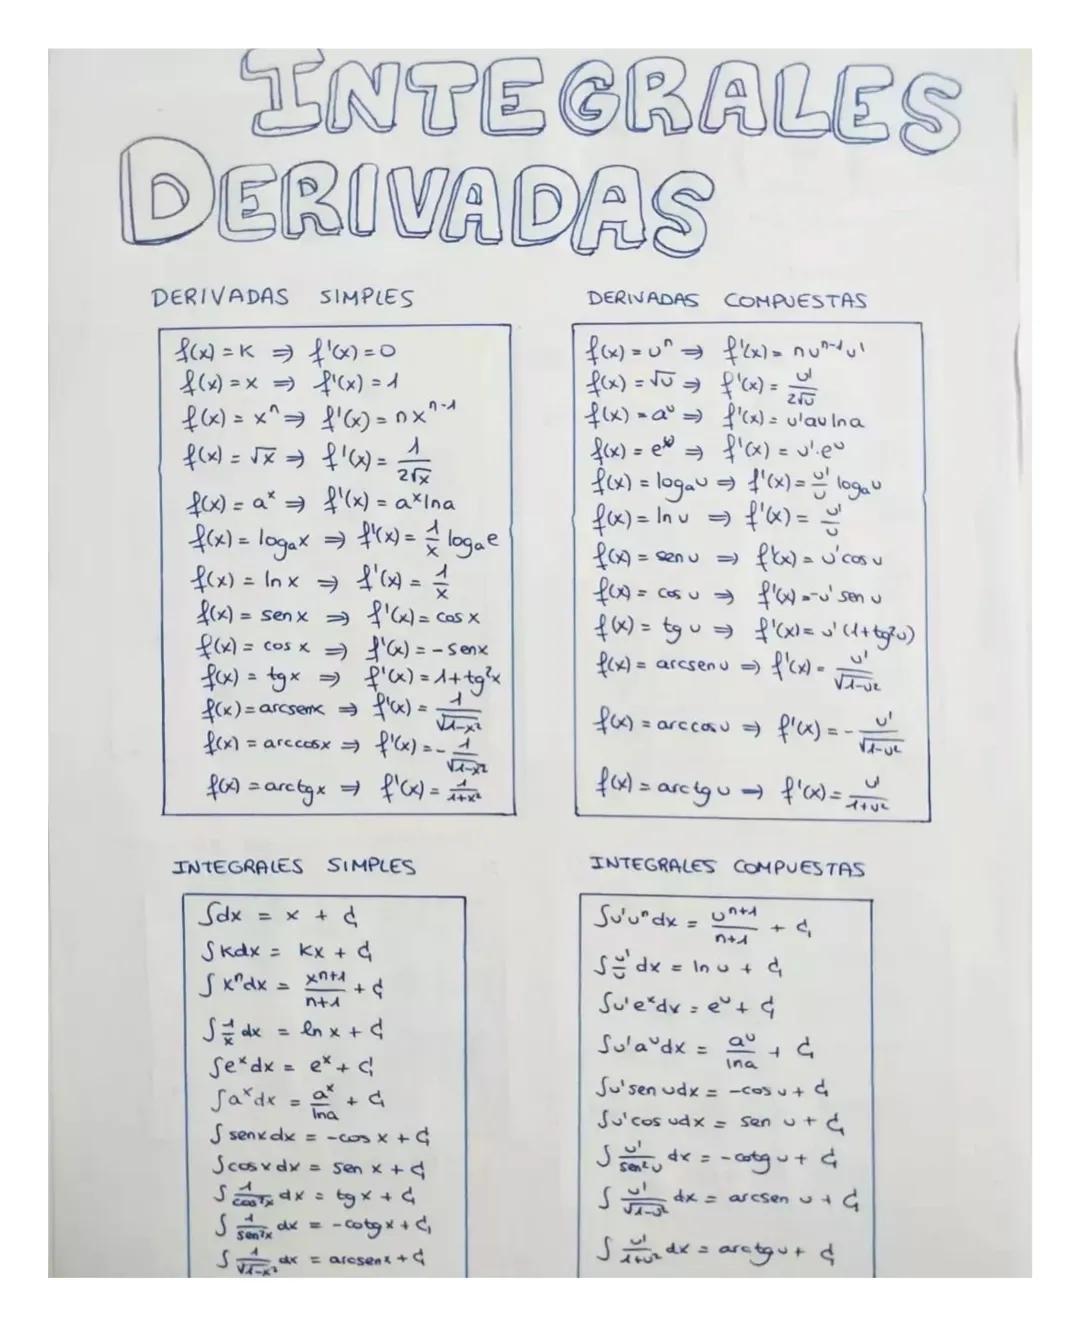 INTEGRALES
DERIVADAS
DERIVADAS SIMPLES
f(x) = K ⇒ f'(x) = 0
f(x) = x ⇒ f'(x) = 1
f(x) = xⁿ ⇒ f'(x) = nxⁿ⁻¹
f(x) = √x ⇒ f'(x) = 1/(2√x)
f(x) = aˣ ⇒ f'(x) = aˣlna
f(x) = logₐx ⇒ f'(x) = 1/x logₐe
f(x) = ln x ⇒ f'(x) = 1/x
f(x) = sen x ⇒ f'(x) = cos x
f(x) = cos x ⇒ f'(x) = - senx
f(x) = tgx ⇒ f'(x) = 1+tg²x
f(x) = arcsenx ⇒ f'(x) = 1/√(1-x²)
f(x) = arccosx ⇒ f'(x) = - 1/√(1-x²)
f(x) = arctgx ⇒ f'(x) = 1/(1+x²)
DERIVADAS COMPUESTAS
f(x) = uⁿ ⇒ f'(x) = nuⁿ⁻¹u'
f(x) = √u ⇒ f'(x) = u'/(2√u)
f(x) = aᵘ ⇒ f'(x) = u'au lna
f(x) = eᵘ ⇒ f'(x) = u'·eᵘ
f(x) = logₐu ⇒ f'(x) = u'/u logₐu
f(x) = ln u ⇒ f'(x) = u'/u
f(x) = sen u ⇒ f'(x) = u'cos u
f(x) = cos u ⇒ f'(x) = -u' sen u
f(x) = tg u ⇒ f'(x) = u'(1+tg²u)
f(x) = arcsenu ⇒ f'(x) = u'/√(1-u²)
f(x) = arccosu ⇒ f'(x) = - u'/√(1-u²)
f(x) = arctgu ⇒ f'(x) = u'/(1+u²)
INTEGRALES SIMPLES
∫dx = x + C
∫Kdx = Kx + C
∫xⁿdx = xⁿ⁺¹/(n+1) + C
∫1/x dx = ln x + C
∫eˣdx = eˣ + C
∫aˣdx = aˣ/lna + C
∫senxdx = -cos x + C
∫cosxdx = sen x + C
∫1/cos²x dx = tgx + C
∫1/sen²x dx = -cotgx + C
∫1/√(1-x²) dx = arcsenx + C
INTEGRALES COMPUESTAS
∫u'uⁿdx = uⁿ⁺¹/(n+1) + C
∫u'/u dx = ln u + C
∫u'eˣdv = eᵘ + C
∫u'aᵘdx = aᵘ/lna + C
∫u'sen udx = -cosu + C
∫u'cos udx = sen u + C
∫u'/sen²u dx = -cotgu + C
∫u'/√(1-u²) dx = arcsen u + C
∫u'/(1+u²) dx = arctgu + C